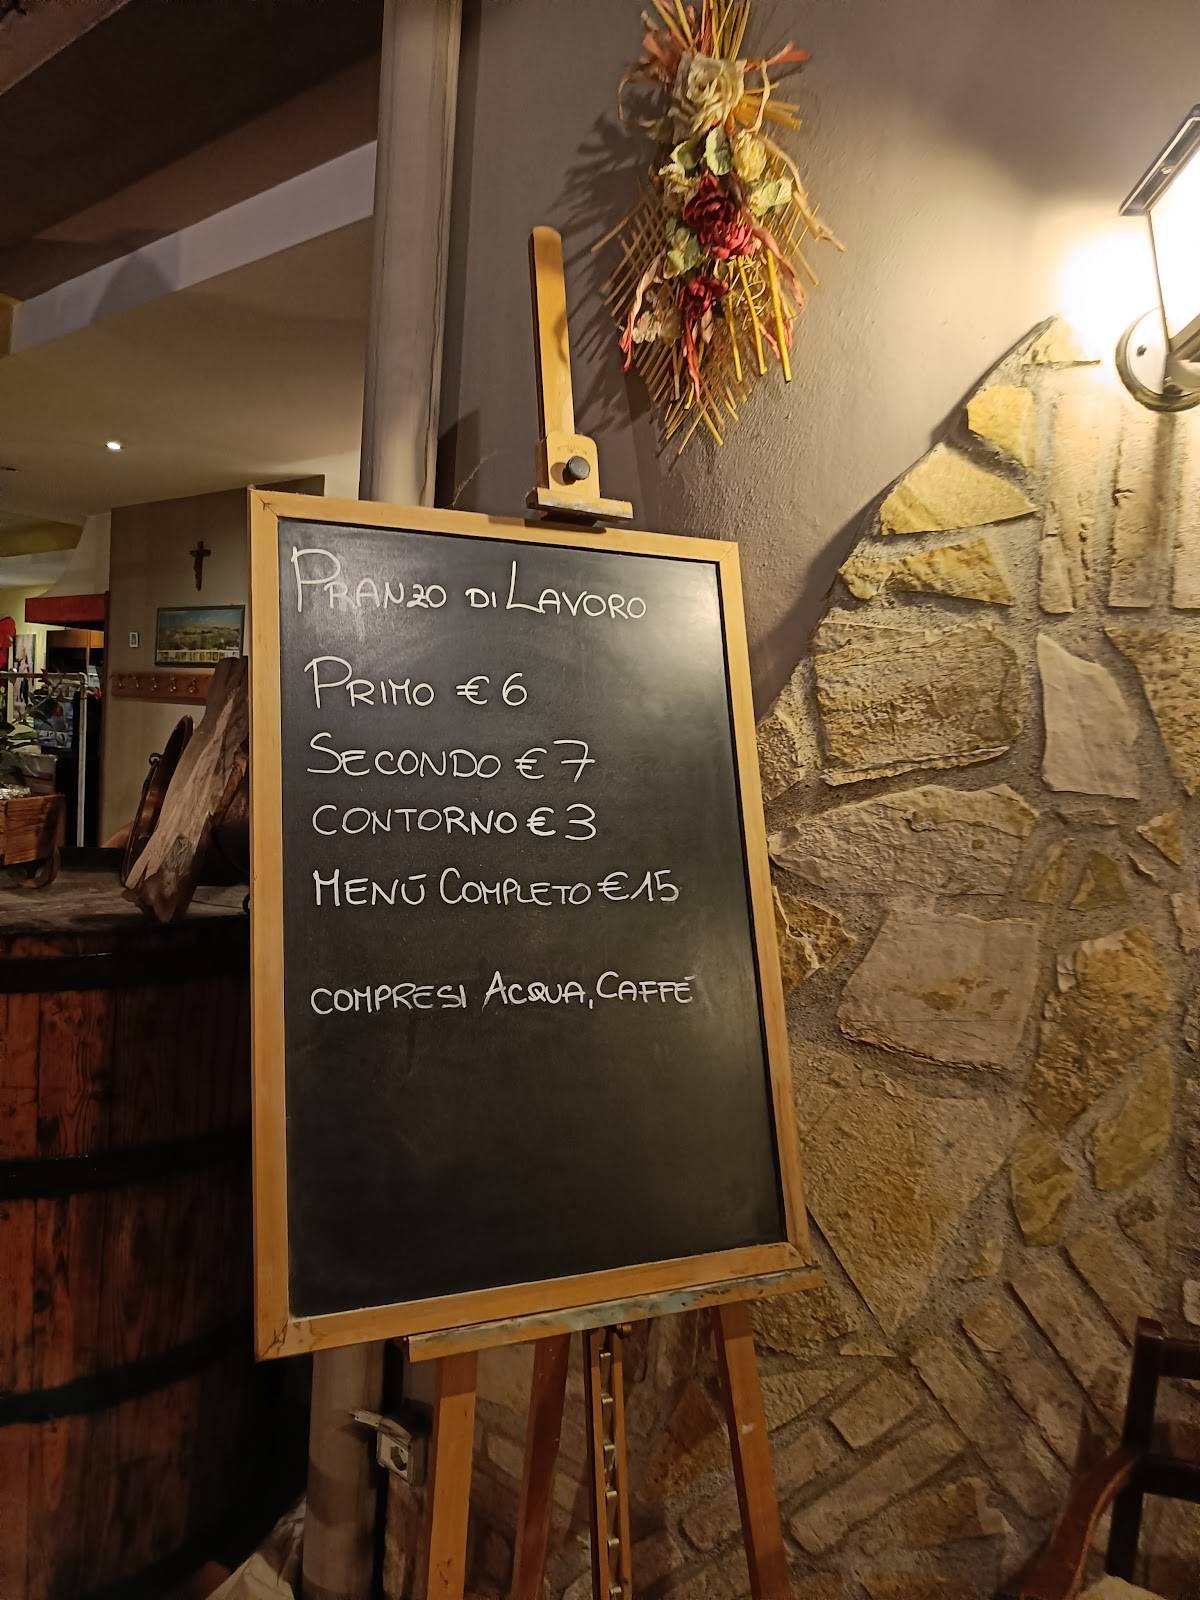 PRANZO DI LAVORO
PRIMO € 6
SECONDO € 7
CONTORNO € 3
MENÚ COMPLETO € 15
COMPRESI ACQUA, CAFFÉ